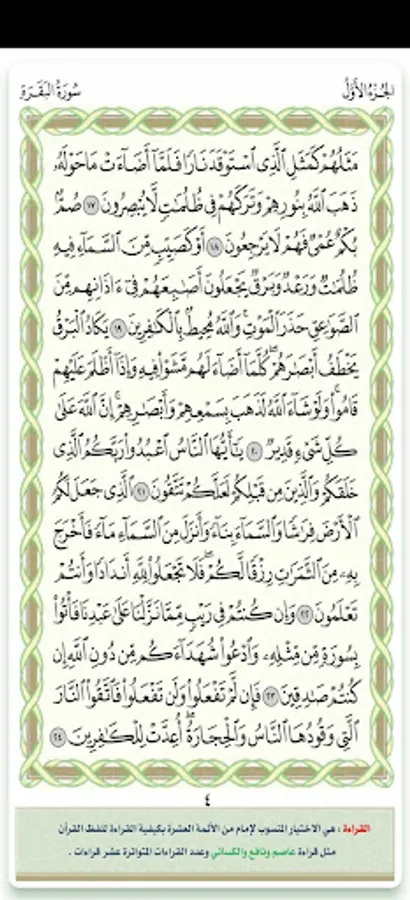 الجزء الأول
سورة البقرة
مَثَلُهُمْ كَمَثَلِ ٱلَّذِى ٱسْتَوْقَدَ نَارًا فَلَمَّآ أَضَآءَتْ مَا حَوْلَهُۥ
ذَهَبَ ٱللَّهُ بِنُورِهِمْ وَتَرَكَهُمْ فِى ظُلُمَٰتٍ لَّا يُبْصِرُونَ ١٧ صُمٌّۢ
بُكْمٌ عُمْىٌ فَهُمْ لَا يَرْجِعُونَ ١٨ أَوْ كَصَيِّبٍ مِّنَ ٱلسَّمَآءِ فِيهِ
ظُلُمَٰتٌ وَرَعْدٌ وَبَرْقٌ يَجْعَلُونَ أَصَٰبِعَهُمْ فِىٓ ءَاذَانِهِم مِّنَ
ٱلصَّوَٰعِقِ حَذَرَ ٱلْمَوْتِ ۚ وَٱللَّهُ مُحِيطٌۢ بِٱلْكَٰفِرِينَ ١٩ يَكَادُ ٱلْبَرْقُ
يَخْطَفُ أَبْصَٰرَهُمْ ۖ كُلَّمَآ أَضَآءَ لَهُم مَّشَوْا۟ فِيهِ وَإِذَآ أَظْلَمَ عَلَيْهِمْ
قَامُوا۟ ۚ وَلَوْ شَآءَ ٱللَّهُ لَذَهَبَ بِسَمْعِهِمْ وَأَبْصَٰرِهِمْ ۚ إِنَّ ٱللَّهَ عَلَىٰ
كُلِّ شَىْءٍ قَدِيرٌ ٢٠ يَٰٓأَيُّهَا ٱلنَّاسُ ٱعْبُدُوا۟ رَبَّكُمُ ٱلَّذِى
خَلَقَكُمْ وَٱلَّذِينَ مِن قَبْلِكُمْ لَعَلَّكُمْ تَتَّقُونَ ٢١ ٱلَّذِى جَعَلَ لَكُمُ
ٱلْأَرْضَ فِرَٰشًا وَٱلسَّمَآءَ بِنَآءً وَأَنزَلَ مِنَ ٱلسَّمَآءِ مَآءً فَأَخْرَجَ
بِهِۦ مِنَ ٱلثَّمَرَٰتِ رِزْقًا لَّكُمْ ۖ فَلَا تَجْعَلُوا۟ لِلَّهِ أَندَادًا وَأَنتُمْ
تَعْلَمُونَ ٢٢ وَإِن كُنتُمْ فِى رَيْبٍ مِّمَّا نَزَّلْنَا عَلَىٰ عَبْدِنَا فَأْتُوا۟
بِسُورَةٍ مِّن مِّثْلِهِۦ وَٱدْعُوا۟ شُهَدَآءَكُم مِّن دُونِ ٱللَّهِ إِن
كُنتُمْ صَٰدِقِينَ ٢٣ فَإِن لَّمْ تَفْعَلُوا۟ وَلَن تَفْعَلُوا۟ فَٱتَّقُوا۟ ٱلنَّارَ
ٱلَّتِى وَقُودُهَا ٱلنَّاسُ وَٱلْحِجَارَةُ ۖ أُعِدَّتْ لِلْكَٰفِرِينَ ٢٤
٤
القراءة : هي الاختيار المنسوب لإمام من الأئمة العشرة بكيفية القراءة للفظ القرآن
مثل قراءة عاصم ونافع والكسائي وعدد القراءات المتواترة عشر قراءات .